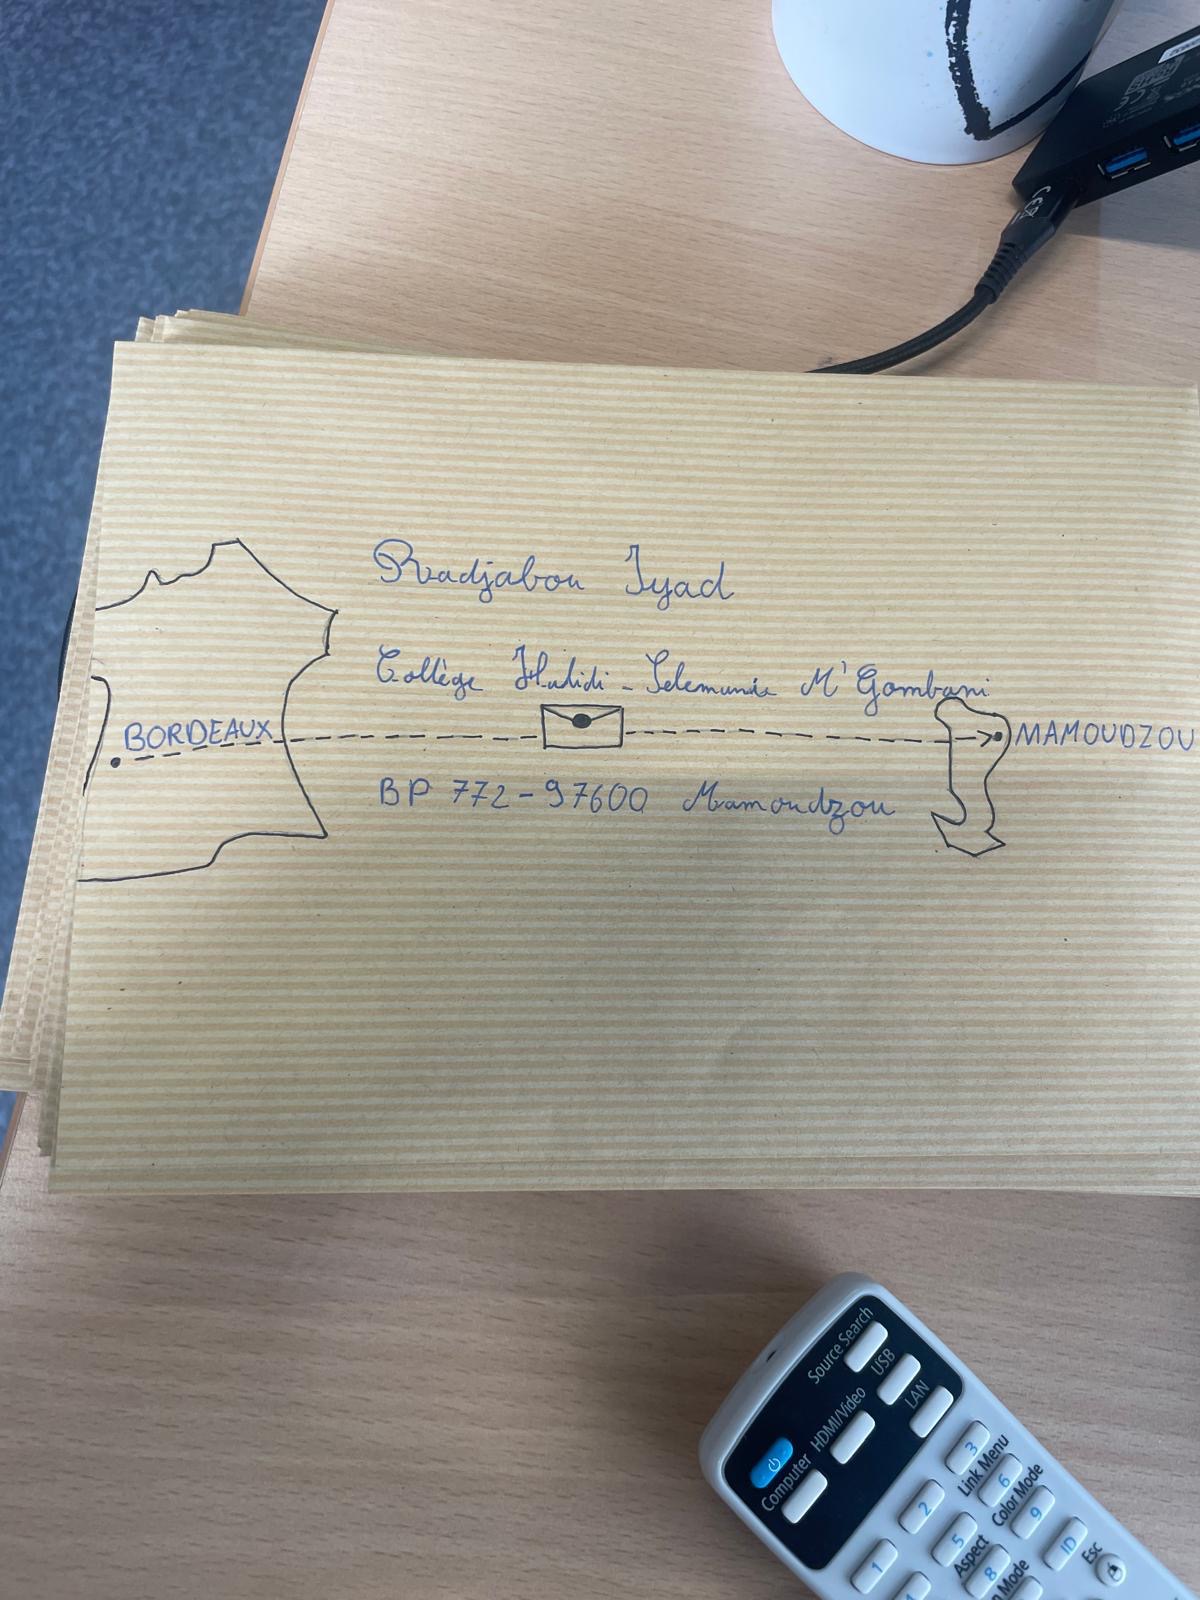 Radjabou Iyad
Collège Halidi - Selemania M'Gombani
BORDEAUX
MAMOUDZOU
BP 772-97600 Mamoudzou
Source Search
USB
LAN
HDMI/Video
Computer
3
Link Menu
6
Color Mode
2
9
5
ID
Aspect
Esc
1
8
Mode